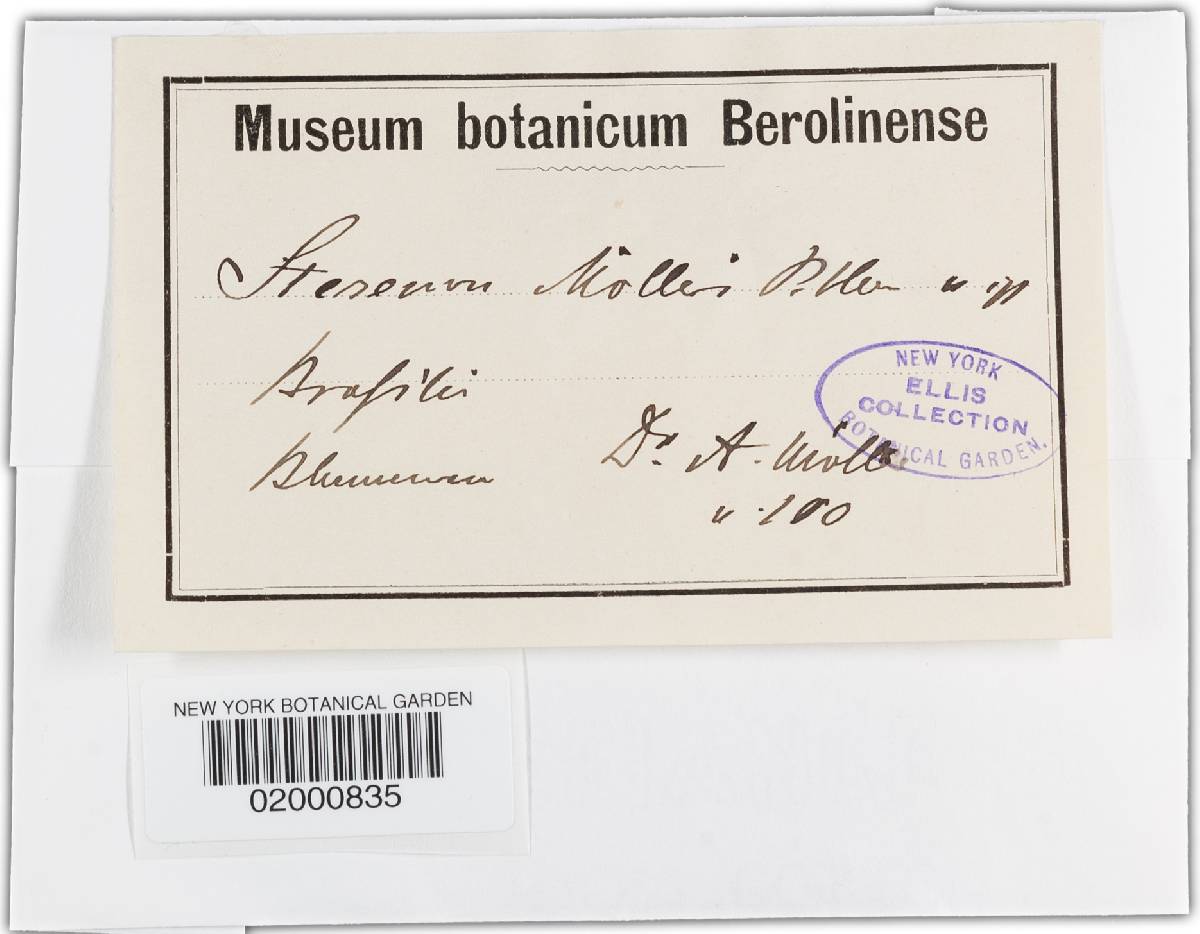 Museum botanicum Berolinense
Stereum Mölleri P. Hen n sp
Brasilia
NEW YORK
ELLIS
COLLECTION
BOTANICAL GARDEN.
Blumenau Dr. A. Möller
n. 100
NEW YORK BOTANICAL GARDEN
02000835